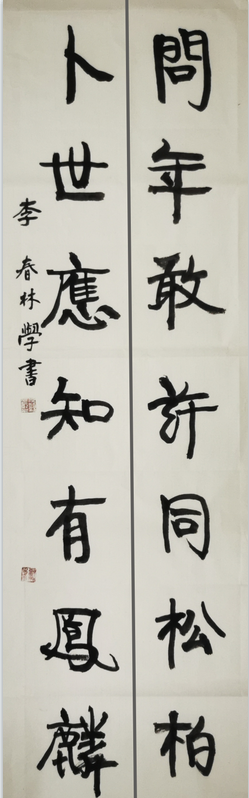 問年敢許同松柏
卜世應知有鳳麟
李春林學書